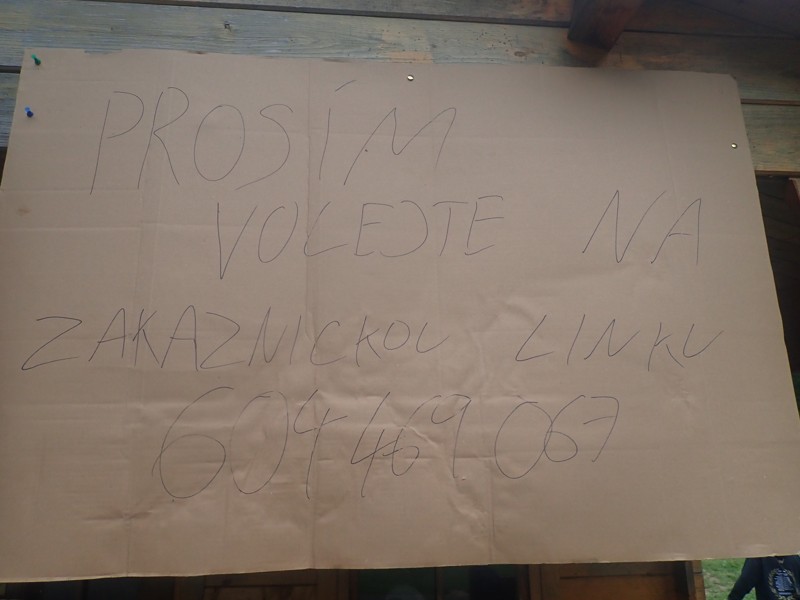 PROSÍM
VOLEJTE NA
ZAKAZNICKOU LINKU
604 469 067